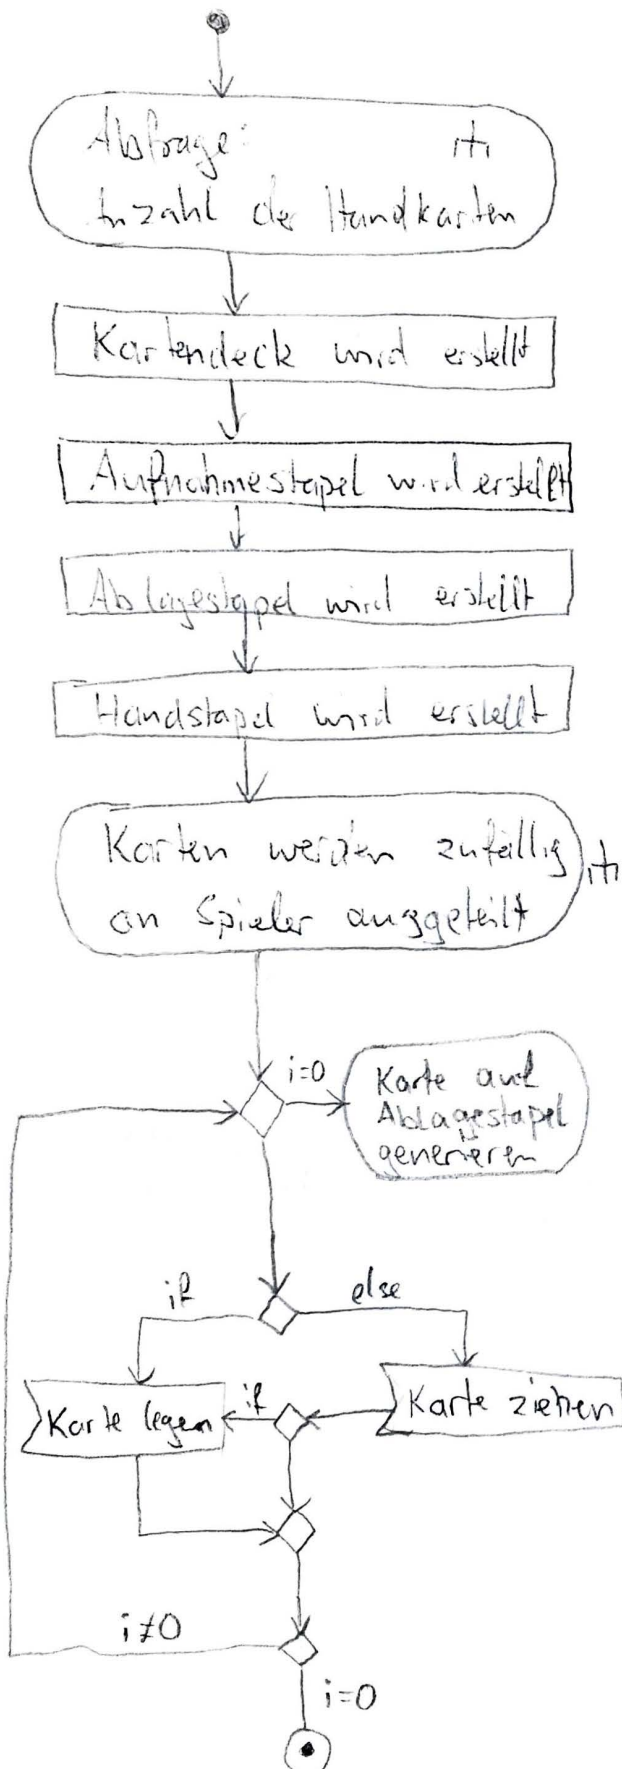 Abfrage:
Anzahl der Handkarten
Kartendeck wird erstellt
Aufnahmestapel wird erstellt
Ablagestapel wird erstellt
Handstapel wird erstellt
Karten werden zufällig
an Spieler ausgeteilt
i=0
Karte auf
Ablagestapel
generieren
if
else
Karte legen
if
Karte ziehen
i≠0
i=0